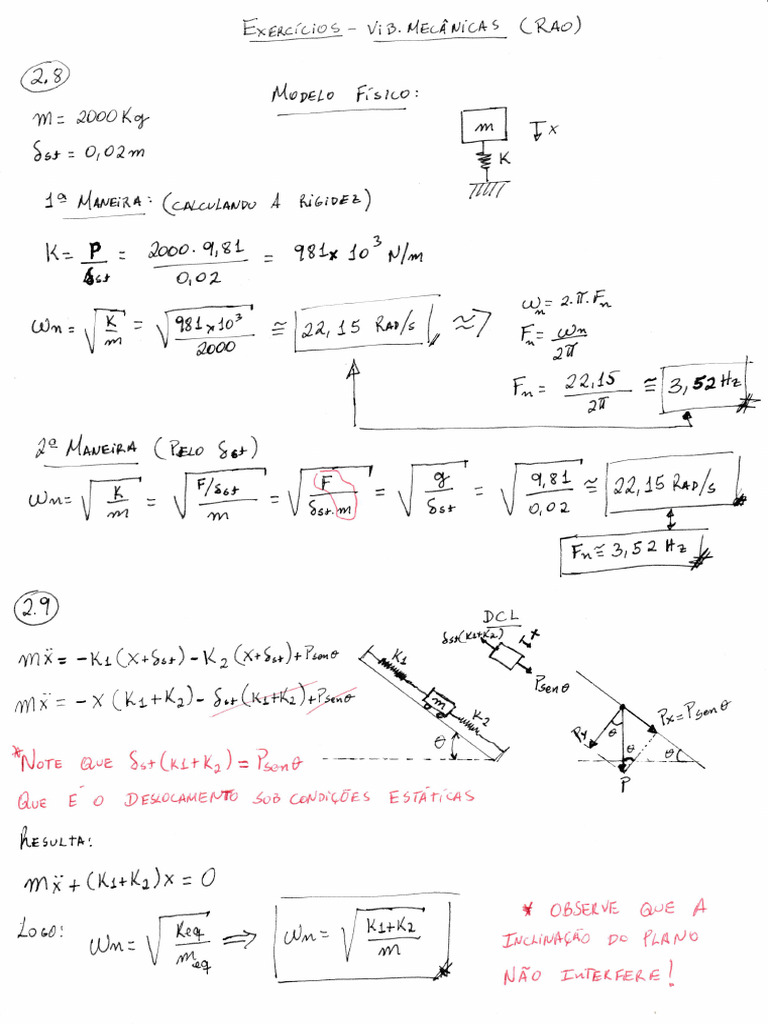 EXERCÍCIOS - VIB. MECÂNICAS (RAO)
2.8
MODELO FÍSICO:
m = 2000 Kg
m
x
δst = 0,02 m
K
1ª MANEIRA: (CALCULANDO A RIGIDEZ)
K = P/δst = 2000. 9,81/0,02 = 981x10³ N/m
ωn = √(K/m) = √(981x10³/2000) ≅ 22,15 RAD/s ≈>
ωn = 2.π.Fn
Fn = ωn/2π
Fn = 22,15/2π ≅ 3,52 Hz
2ª MANEIRA (PELO δst)
ωn = √(K/m) = √(F/δst/m) = √(F/δst.m) = √(g/δst) = √(9,81/0,02) ≅ 22,15 RAD/s
Fn ≅ 3,52 Hz
2.9
DCL
δst(K1+K2)
x
Psenθ
mẍ = -K1(x+δst) - K2(x+δst) + Psenθ
mẍ = -x(K1+K2) - δst(K1+K2) + Psenθ
K1
m
K2
θ
Px = Psenθ
Py
θ
θ
θ
P
*NOTE QUE δst(K1+K2) = Psenθ
QUE É O DESLOCAMENTO SOB CONDIÇÕES ESTÁTICAS
RESULTA:
mẍ + (K1+K2)x = 0
LOGO: ωn = √(Keq/meq) => ωn = √(K1+K2/m)
* OBSERVE QUE A
INCLINAÇÃO DO PLANO
NÃO INTERFERE!